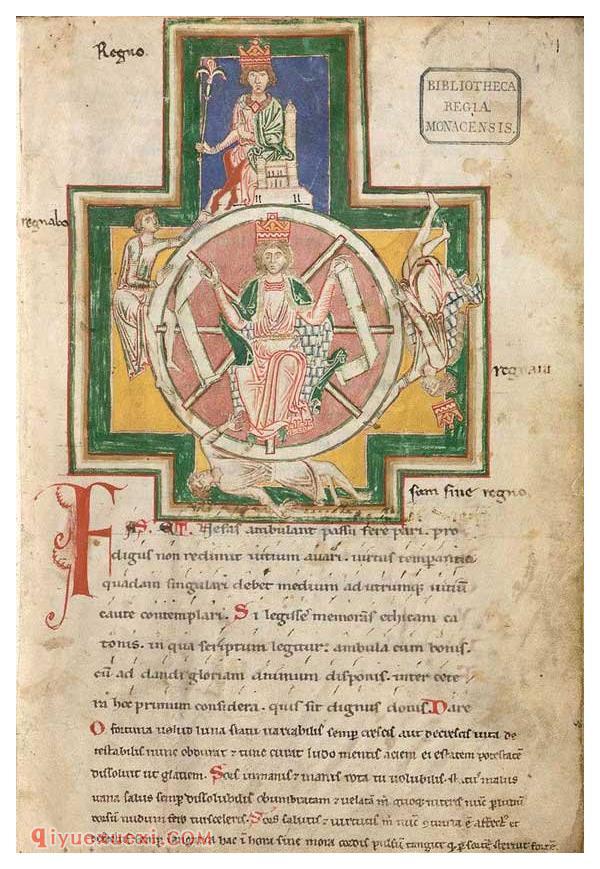 Regno.
BIBLIOTHECA
REGIA
MONACENSIS.
regnabo
regnaui
sum sine regno.
Fas et Nefas ambulant passu fere pari. pro
digus non redimit uitium auari. uirtus temperantia
quadam singulari debet medium ad utrumque uitiū
caute contemplari. Si legisse memoras ethicam ca
tonis. in qua scriptum legitur. ambula cum bonis.
cū ad dandi gloriam animum disponis. inter cete
ra hoc primum considera. quis sit dignus donis. Dare
O fortuna uelud luna statu uariabilis semp crescis aut decrescis uita de
testabilis nunc obdurat & tunc curat ludo mentis aciem egestatem potestatē
dissoluit ut glaciem. Sors inmanis & inanis rota tu uolubilis. status malus
uana salus semp dissolubilis obumbratam & uelatā m quoque niteris nūc p ludum
dorsum nudum fero tui sceleris. Sors salutis & uirtutis m nūc
hac in hora sine mora cordis pulsum tangite
qiyuetuexi.COM